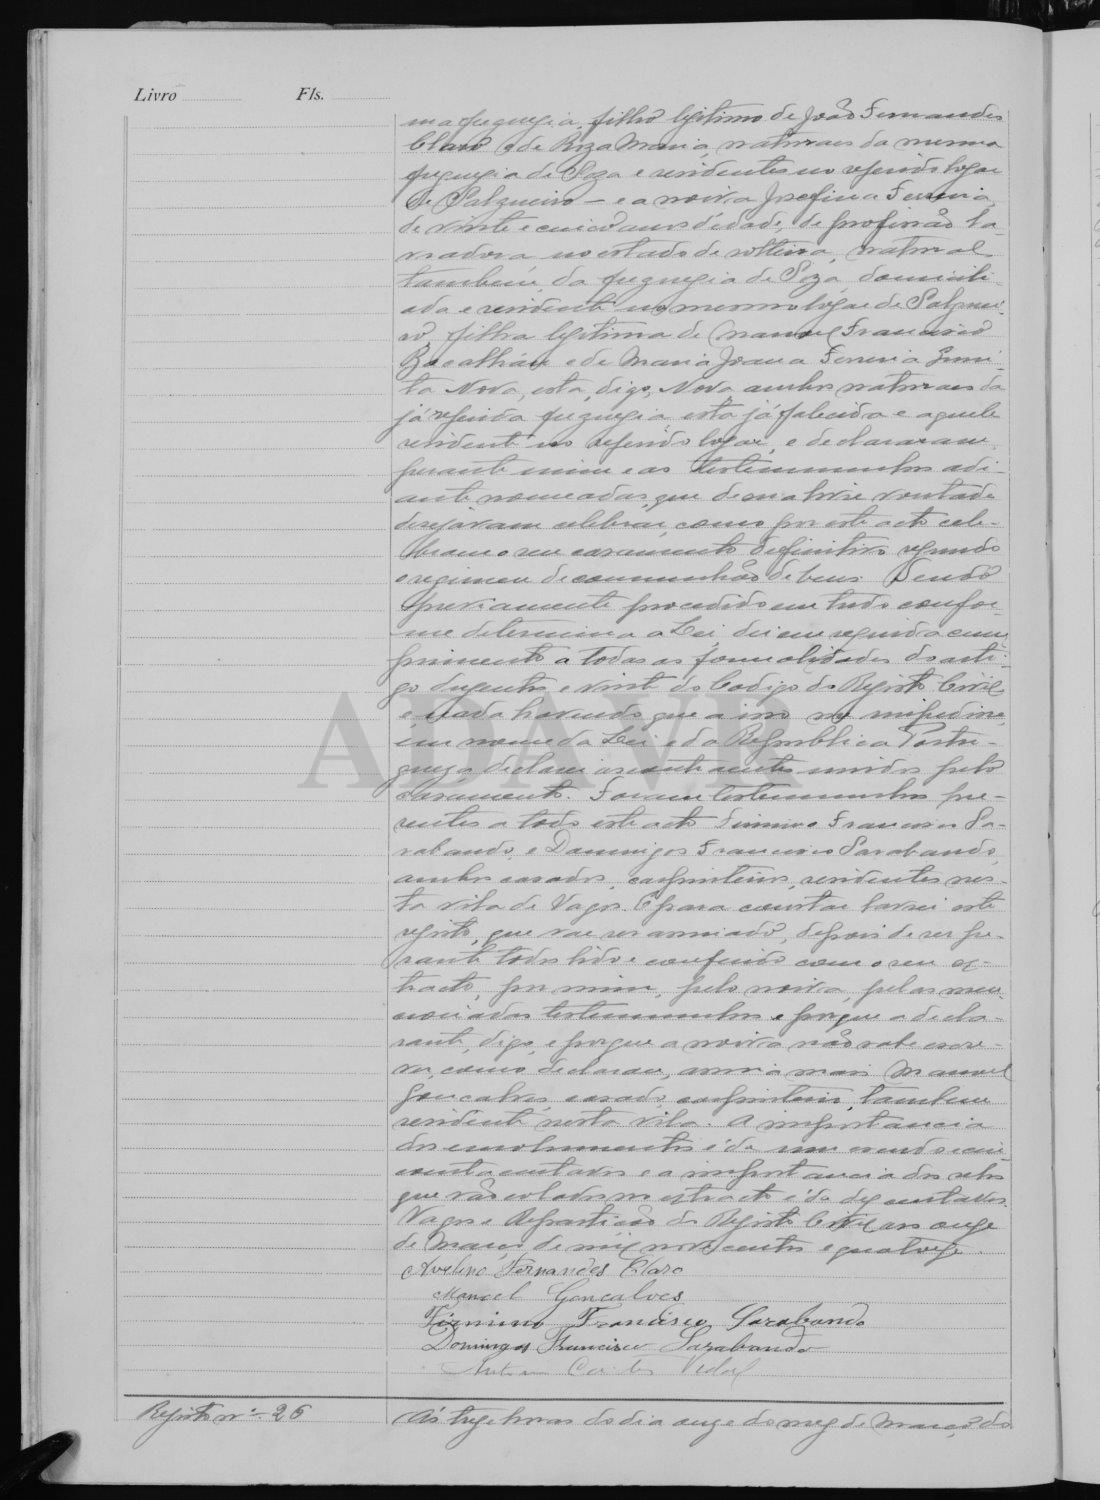 Livro Fls.
ma freguezia, filho legitimo de João Fernandes
Claro e de Roza Maria, naturaes da mesma
freguezia de Soza e residentes no referido logar
de Salgueiro — e a noiva Josefina Ferreira,
de vinte e cinco anos d'edade, de profissão la-
vradora no estado de solteira, natural
tambem da freguezia de Soza, domicili-
ada e residente no mesmo logar de Salguei-
ro, filha legitima de Manuel Francisco
Bacalhau e de Maria Joana Ferreira
Nova, esta, digo, Nova ambos naturaes da
já referida freguezia esta já falecida e aquele
residente no referido logar, e declararam
perante mim e as testemunhas adi-
ante nomeadas, que de sua livre vontade
desejavam celebrar, como por este acto cele-
bram o seu casamento definitivo segundo
o regimen de communhão de bens. Tendo
previamente procedido em tudo confor-
me determina a Lei dei em seguida cum-
primento a todas as formalidades do arti-
go duzentos e vinte do Codigo do Registo Civil
e nada havendo que a isso me impedisse,
em nome da Lei e da Republica Portu-
gueza declarei os contraentes unidos pelo
casamento. Foram testemunhas pre-
sentes a todo este acto Firmino Francisco Sa-
rabando e Domingos Francisco Sarabando,
ambos casados, carpinteiros, residentes nes-
ta vila de Vagos. E para constar lavrei este
registo, que vae ser assinado, depois de ser pe-
rante todos lido e conferido com o seu ex-
tracto, por mim, pelo noivo, pelas men-
cionadas testemunhas e porque a decla-
rante, digo, e porque a noiva não sabe escre-
ver, como declarou, assina mais Manuel
Gonçalves, casado, carpinteiro, tambem
residente nesta vila. A importancia
dos emolumentos é de um escudo e cin-
coenta centavos e a importancia dos selos
que vão colados no extracto é de dez centavos.
Vagos e Repartição do Registo Civil aos onze
de Março de mil novecentos e quatorze.
Avelino Fernandes Claro
Manoel Goncalves
Firmino Francisco Sarabando
Domingos Francisco Sarabando
Vidal
Registo nº 26
Ás treze horas do dia onze do mez de Março do
ADAVR